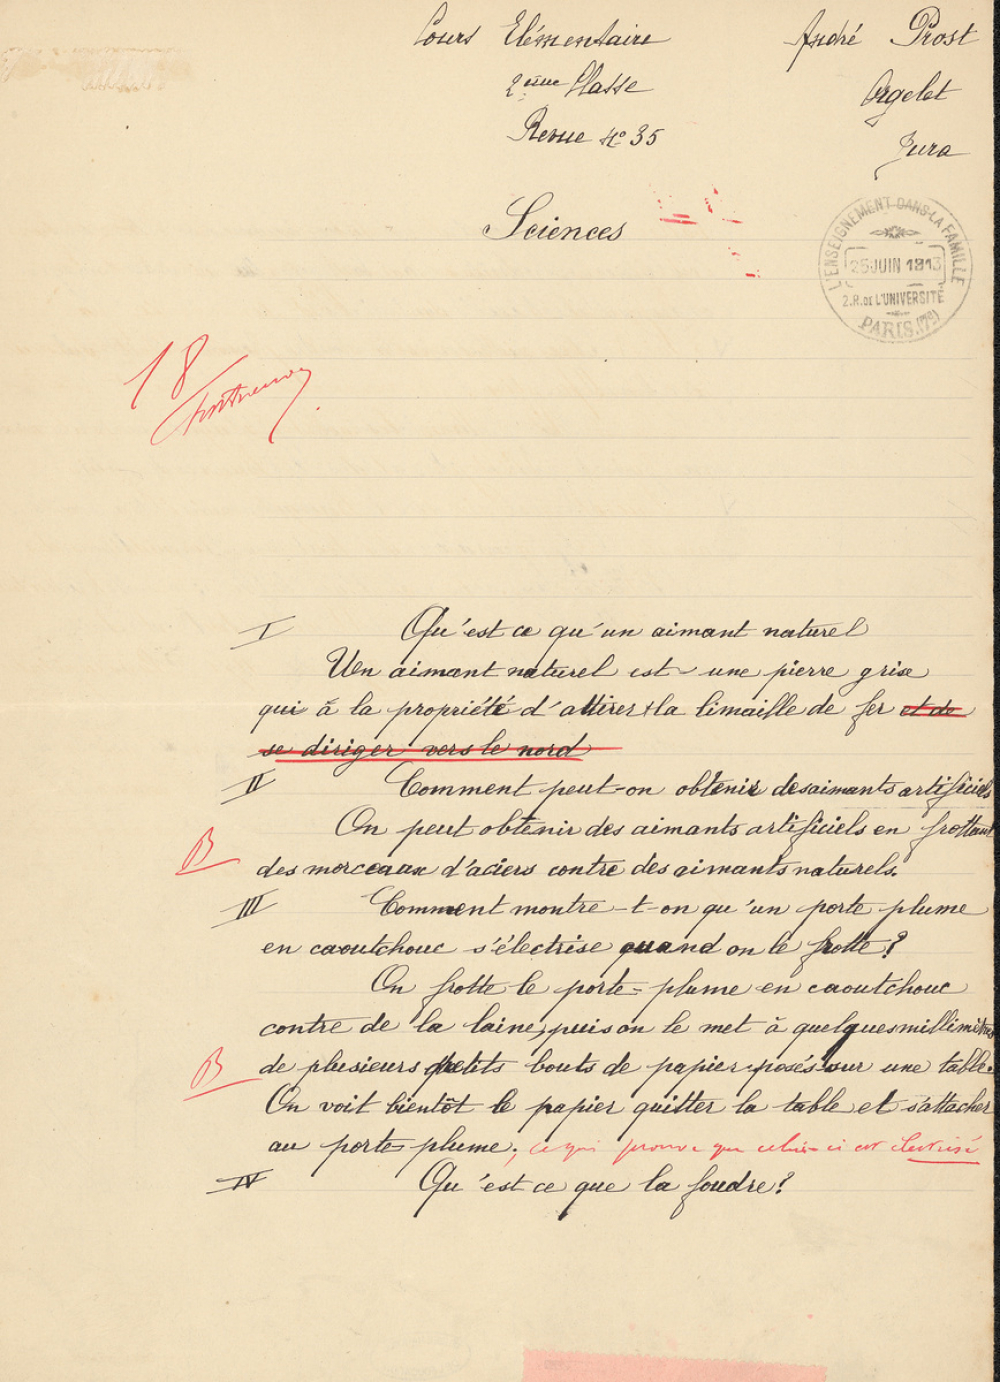 Cours Elémentaire
André Prost
2ème Classe
Orgelet
Revue No 35
Jura
Sciences
L'ENSEIGNEMENT DANS LA FAMILLE
25 JUIN 1913
2.R.DE L'UNIVERSITÉ
PARIS.(7e)
18
I Qu'est ce qu'un aimant naturel
Un aimant naturel est une pierre grise
qui à la propriété d'attirer la limaille de fer et de
se diriger vers le nord
II Comment peut-on obtenir des aimants artificiels
On peut obtenir des aimants artificiels en frottant
B
des morceaux d'aciers contre des aimants naturels.
III Comment montre-t-on qu'un porte plume
en caoutchouc s'électrise quand on le frotte?
On frotte le porte-plume en caoutchouc
contre de la laine, puis on le met à quelques millimètres
B
de plusieurs petits bouts de papier posés sur une table.
On voit bientôt le papier quitter la table et s'attacher
au porte plume; ce qui prouve que celui-ci est électrisé
IV Qu'est ce que la foudre?